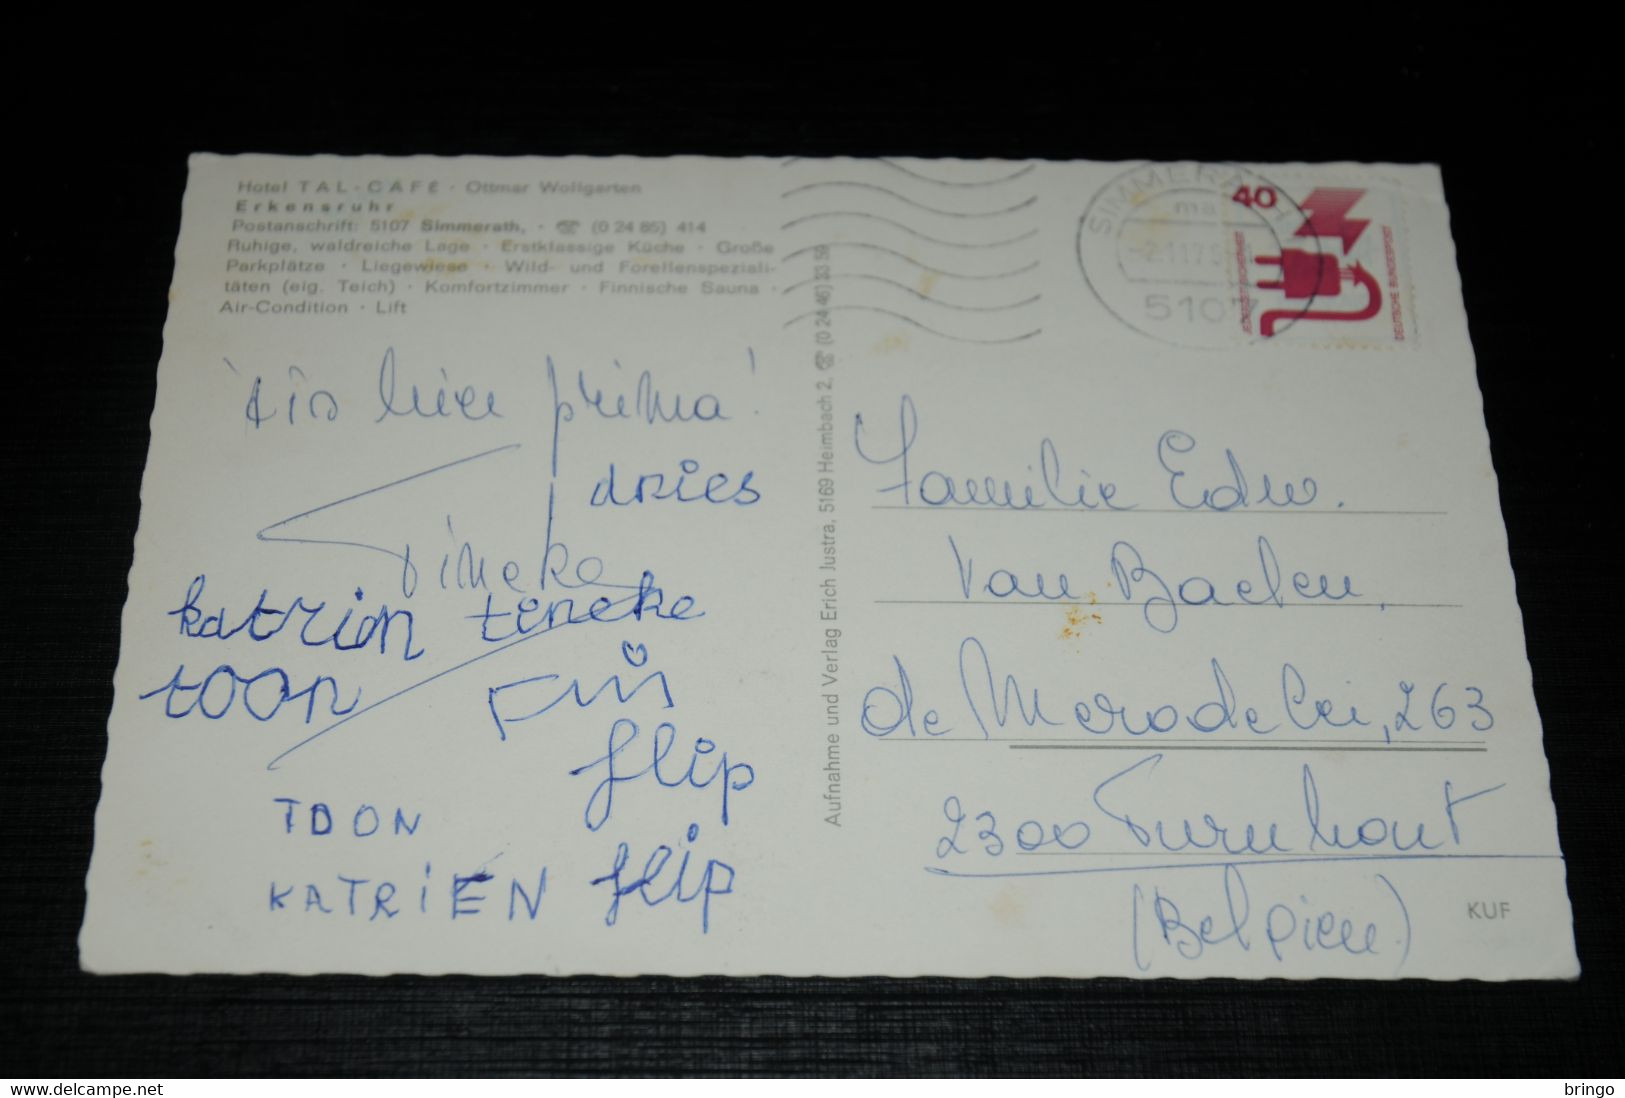 Hotel TAL-CAFÉ · Ottmar Wollgarten
Erkensruhr
Postanschrift: 5107 Simmerath, · ☎ (0 24 85) 414
Ruhige, waldreiche Lage · Erstklassige Küche · Große
Parkplätze · Liegewiese · Wild- und Forellenspeziali-
täten (eig. Teich) · Komfortzimmer · Finnische Sauna ·
Air-Condition · Lift
hier prima!
dries
Tineke
katrien teneke
toon
flip
TOON
KATRIEN flip
Aufnahme und Verlag Erich Justra, 5169 Heimbach 2, ☎ (0 24 46) 33 59
SIMMERATH
5107
40
JEDERZEIT SICHERHEIT
DEUTSCHE BUNDESPOST
Familie Edw.
Van Baelen,
de Merodelei, 263
2300 Turnhout
(Belgien)
KUF
delcampe.net
bringo